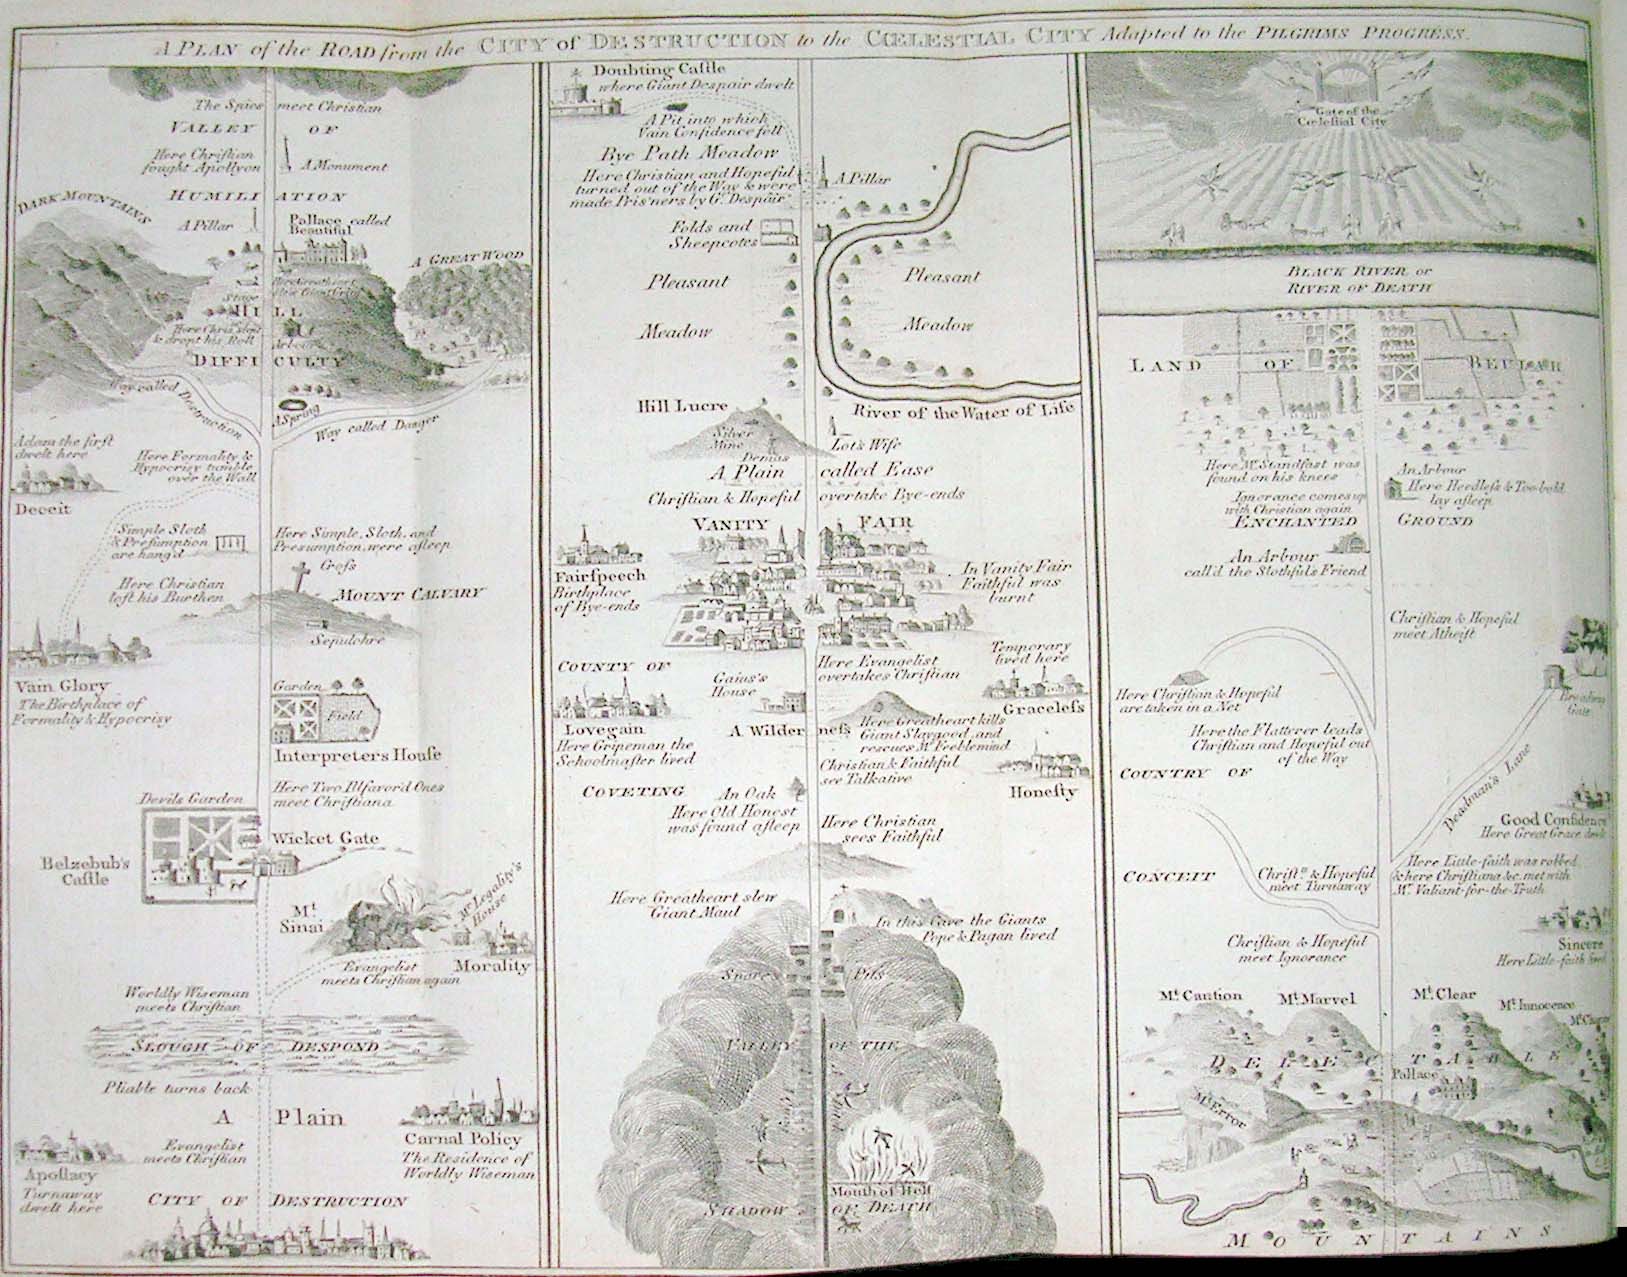 A PLAN of the ROAD from the CITY of DESTRUCTION to the CŒLESTIAL CITY Adapted to the PILGRIMS PROGRESS.
The Spies meet Christian
VALLEY OF
Here Christian
fought Apollyon
A Monument
HUMILIATION
DARK MOUNTAINS
A Pillar
Pallace called
Beautiful
A GREAT WOOD
Here Greatheart
slew Giant Grim
Stage
HILL
Here Chris. slept
& dropt his Roll
Arbour
DIFFICULTY
Way called Destruction
A Spring
Way called Danger
Adam the first
dwelt here
Deceit
Here Formality &
Hypocrisy tumble
over the Wall
Simple Sloth
& Presumption
are hang'd
Here Simple, Sloth, and
Presumption, were asleep
Cross
Here Christian
left his Burthen
MOUNT CALVARY
Sepulchre
Vain Glory
The Birthplace of
Formality & Hypocrisy
Garden
Field
Interpreters House
Here Two Ilfavor'd Ones
meet Christiana
Devils Garden
Wicket Gate
Belzebub's
Castle
Mt.
Sinai
Mr. Legality's
House
Evangelist
meets Christian again
Morality
Worldly Wiseman
meets Christian
SLOUGH OF DESPOND
Pliable turns back
A Plain
Carnal Policy
The Residence of
Worldly Wiseman
Evangelist
meets Christian
Apostacy
Turnaway
dwelt here
CITY OF DESTRUCTION
Doubting Castle
where Giant Despair dwelt
A Pit into which
Vain Confidence fell
Bye Path Meadow
Here Christian and Hopeful
turned out of the Way & were
made Pris'ners by Gt. Despair
A Pillar
Folds and
Sheepcotes
Pleasant
Meadow
Pleasant
Meadow
Hill Lucre
River of the Water of Life
Silver
Mine
Demas
Lot's Wife
A Plain called Ease
Christian & Hopeful overtake Bye-ends
VANITY FAIR
Fairspeech
Birthplace
of Bye-ends
In Vanity Fair
Faithful was
burnt
COUNTY OF
Here Evangelist
overtakes Christian
Temporary
lived here
Gaius's
House
Graceless
Lovegain
Here Gripeman the
Schoolmaster lived
A Wilderness
Here Greatheart kills
Giant Slaygood, and
rescues Mr. Feeblemind
Christian & Faithful
see Talkative
Honesty
COVETING
An Oak
Here Old Honest
was found asleep
Here Christian
sees Faithful
Here Greatheart slew
Giant Maul
In this Cave the Giants
Pope & Pagan lived
Snares Pits
VALLEY OF THE
Mouth of Hell
SHADOW OF DEATH
Gate of the
Cœlestial City
BLACK RIVER or
RIVER OF DEATH
LAND OF BEULAH
Here Mr. Standfast was
found on his knees
An Arbour
Here Heedless & Too-bold
lay asleep
Ignorance comes up
with Christian again
ENCHANTED GROUND
An Arbour
call'd the Slothful's Friend
Christian & Hopeful
meet Atheist
Here Christian & Hopeful
are taken in a Net
Broadway
Gate
Here the Flatterer leads
Christian and Hopeful out
of the Way
COUNTRY OF
Deadman's Lane
Good Confidence
Here Great Grace dwelt
CONCEIT
Christn. & Hopeful
meet Turnaway
Here Little-faith was robbed
& here Christiana &c. met with
Mr. Valiant-for-the-Truth
Christian & Hopeful
meet Ignorance
Sincere
Here Little-faith lived
Mt. Caution
Mt. Marvel
Mt. Clear
Mt. Innocence
DELECTABLE
Pallace
Mt. Error
MOUNTAINS